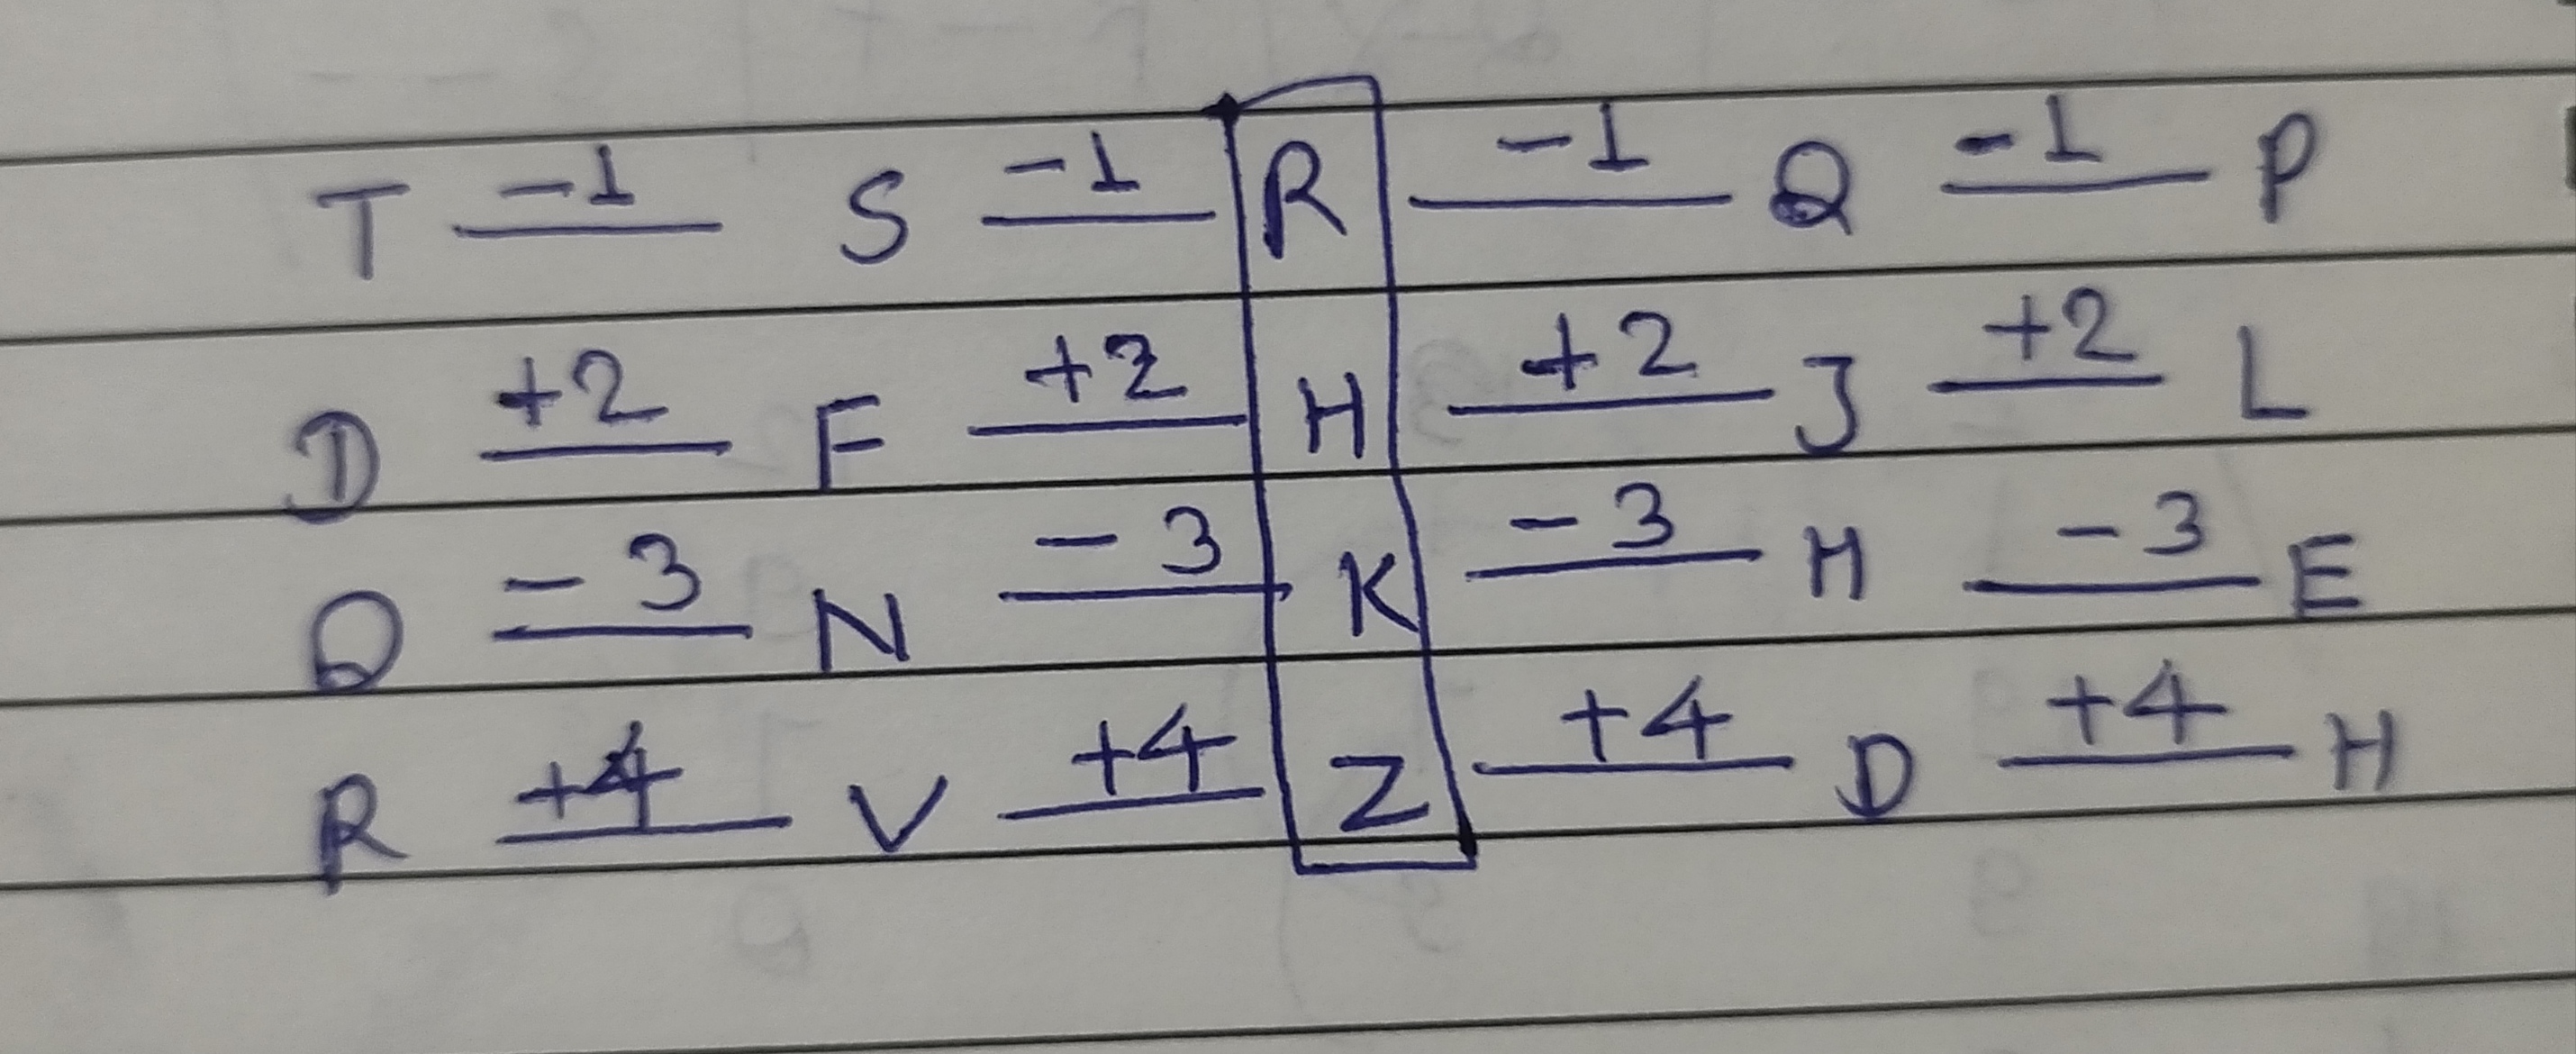 T -1 S -1 R -1 Q -1 P
D +2 F +2 H +2 J +2 L
Q -3 N -3 K -3 H -3 E
R +4 V +4 Z +4 D +4 H